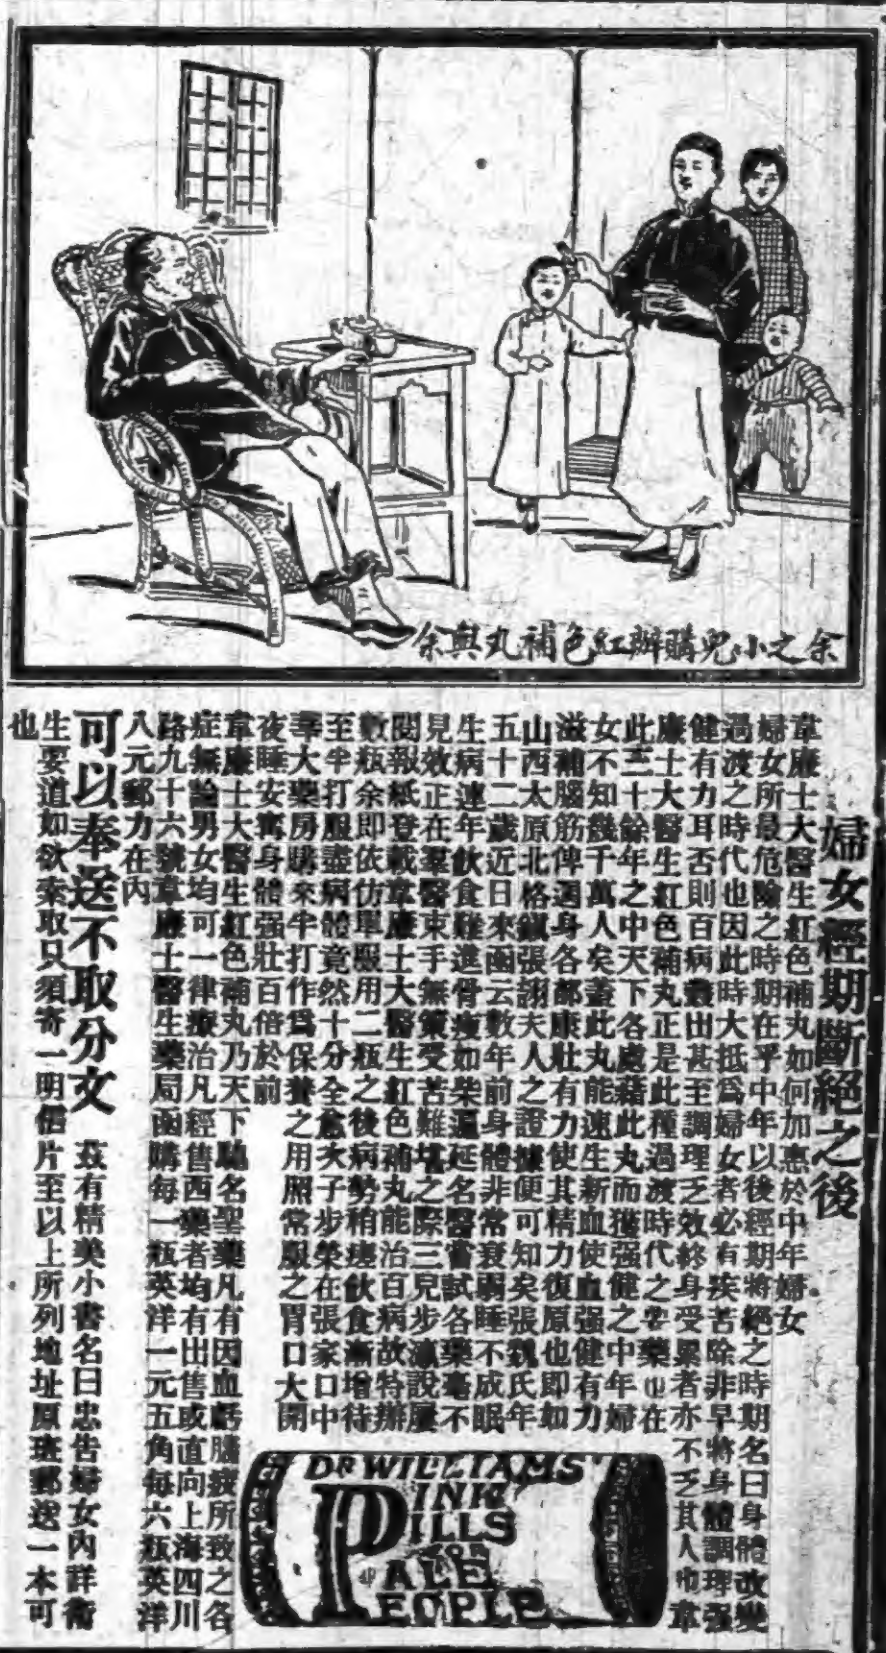 余之小兒購辦紅色補丸與余
婦女經期斷絕之後
韋廉士大醫生紅色補丸如何加惠於中年婦女
婦女所最危險之時期在乎中年以後經期將絕之時期名曰身體改變
過渡之時代也因此時大抵爲婦女者必有疾苦除非早將身體調理强
健有力耳否則百病叢出甚至調理乏效終身受累者亦不乏其人韋
廉士大醫生紅色補丸正是此種過渡時代之要藥也在
此三十餘年之中天下各處藉此丸而獲强健之中年婦
女不知幾千萬人矣蓋此丸能速生新血使血强健有力
滋補腦筋俾週身各部康壯有力使其精力復原也即如
山西太原北格鎮張詡夫人之證據便可知矣張魏氏年
五十二歲近日來函云數年前身體非常衰弱睡不成眠
生病連年飲食難進骨瘦如柴遍延名醫嘗試各藥毫不
見效正在羣醫束手無策受苦難堪之際三兒步瀛說屢
閱報紙登載韋廉士大醫生紅色補丸能治百病故特辦
數瓶余即依仿單服用二瓶之後病勢稍瘥飲食漸增待
至半打服盡病體竟然十分全愈次子步榮在張家口中
華大藥房購來半打作爲保養之用照常服之胃口大開
夜睡安甯身體强壯百倍於前
韋廉士大醫生紅色補丸乃天下馳名聖藥凡有因血虧腦疲所致之各
症無論男女均可一律療治凡經售西藥者均有出售或直向上海四川
路九十六號韋廉士醫生藥局函購每一瓶英洋一元五角每六瓶英洋
八元郵力在內
可以奉送不取分文 茲有精美小書名曰忠告婦女內詳衛
生要道如欲索取只須寄一明信片至以上所列地址原班郵送一本可
也
DR WILLIAMS'
PINK
PILLS
FOR
PALE
PEOPLE